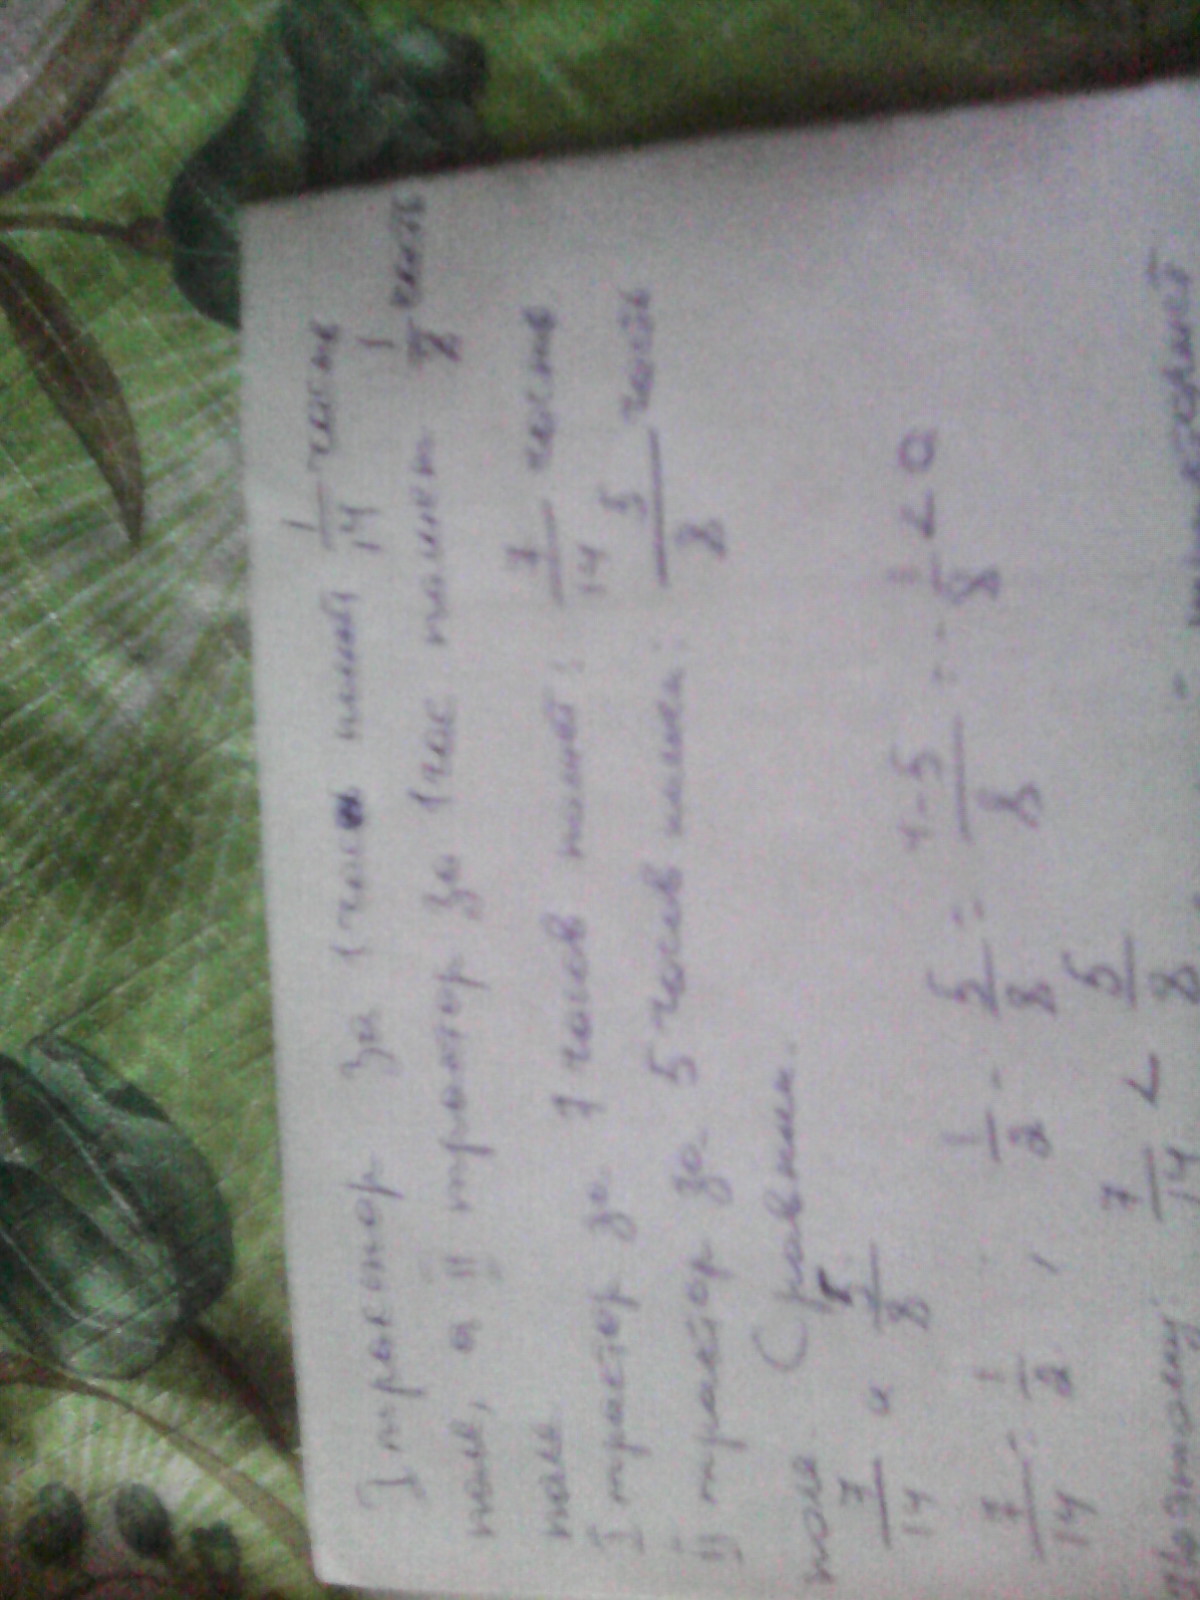 I трактор за 1 час пашет 1/14 часть
поля, а II трактор за 1 час пашет 1/8 часть
поля
I трактор за 7 часов пашет: 7/14 часть
II трактор за 5 часов пашет: 5/8 часть
поля. Сравним.
7/14 и 5/8
7/14 = 1/2 , 1/2 - 5/8 = 4-5/8 = -1/8 < 0
7/14 < 5/8
Поэтому: